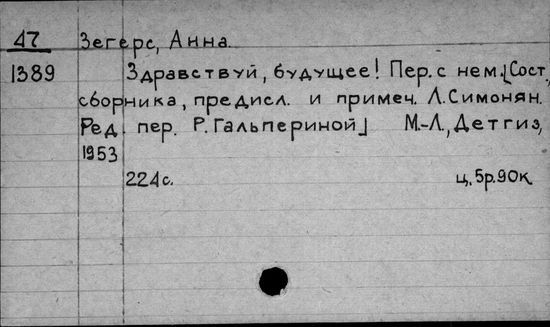 47 Зегерс, Анна
1389 Здравствуй, будущее! Пер. с нем. [Сост.
сборника, предисл. и примеч. Л. Симонян.
Ред. пер. Р. Гальпериной] М.-Л., Детгиз,
1953
224 с. ц. 5 р. 90 к